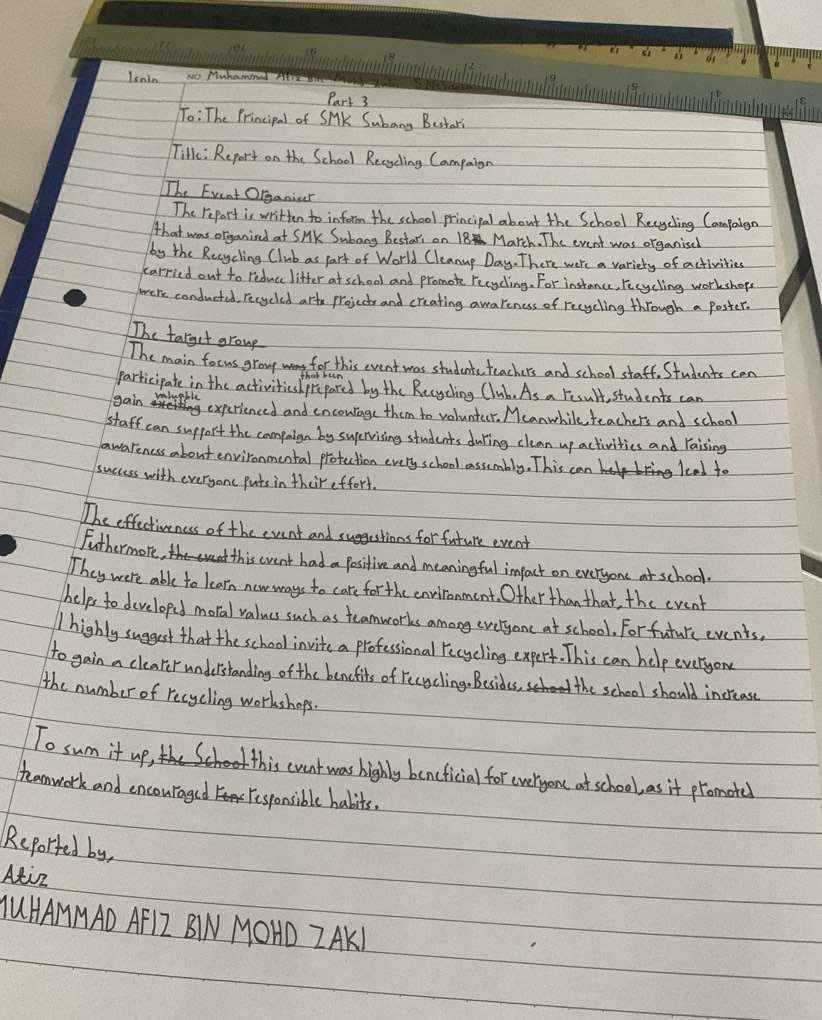 Isnin NO. Muhammad Afiz Bin
Part 3
To: The Principal of SMK Subang Bestari
Title: Report on the School Recycling Campaign
The Event Organiser
The report is written to inform the school principal about the School Recycling Campaign
that was organised at SMK Subang Bestari on 18 March. The event was organised
by the Recycling Club as part of World Cleanup Day. There were a variety of activities
carried out to reduce litter at school and promote recycling. For instance, recycling workshops
were conducted, recycled arts projects and creating awareness of recycling through a poster.
The target group
The main focus group was for this event was students, teachers and school staff. Students can
participate in the activities that been prepared by the Recycling Club. As a result, students can
gain exciting valuable experienced and encourage them to volunteer. Meanwhile, teachers and school
staff can support the campaign by supervising students during clean up activities and raising
awareness about environmental protection every school assembly. This can help bring lead to
success with everyone puts in their effort.
The effectiveness of the event and suggestions for future event
Futhermore, the event this event had a positive and meaningful impact on everyone at school.
They were able to learn new ways to care for the environment. Other than that, the event
helps to developed moral values such as teamworks among everyone at school. For future events,
I highly suggest that the school invite a professional recycling expert. This can help everyone
to gain a clearer understanding of the benefits of recycling. Besides, school the school should increase
the number of recycling workshops.
To sum it up, the School this event was highly beneficial for everyone at school, as it promoted
teamwork and encouraged responsible habits.
Reported by,
Afiz
MUHAMMAD AFIZ BIN MOHD ZAKI